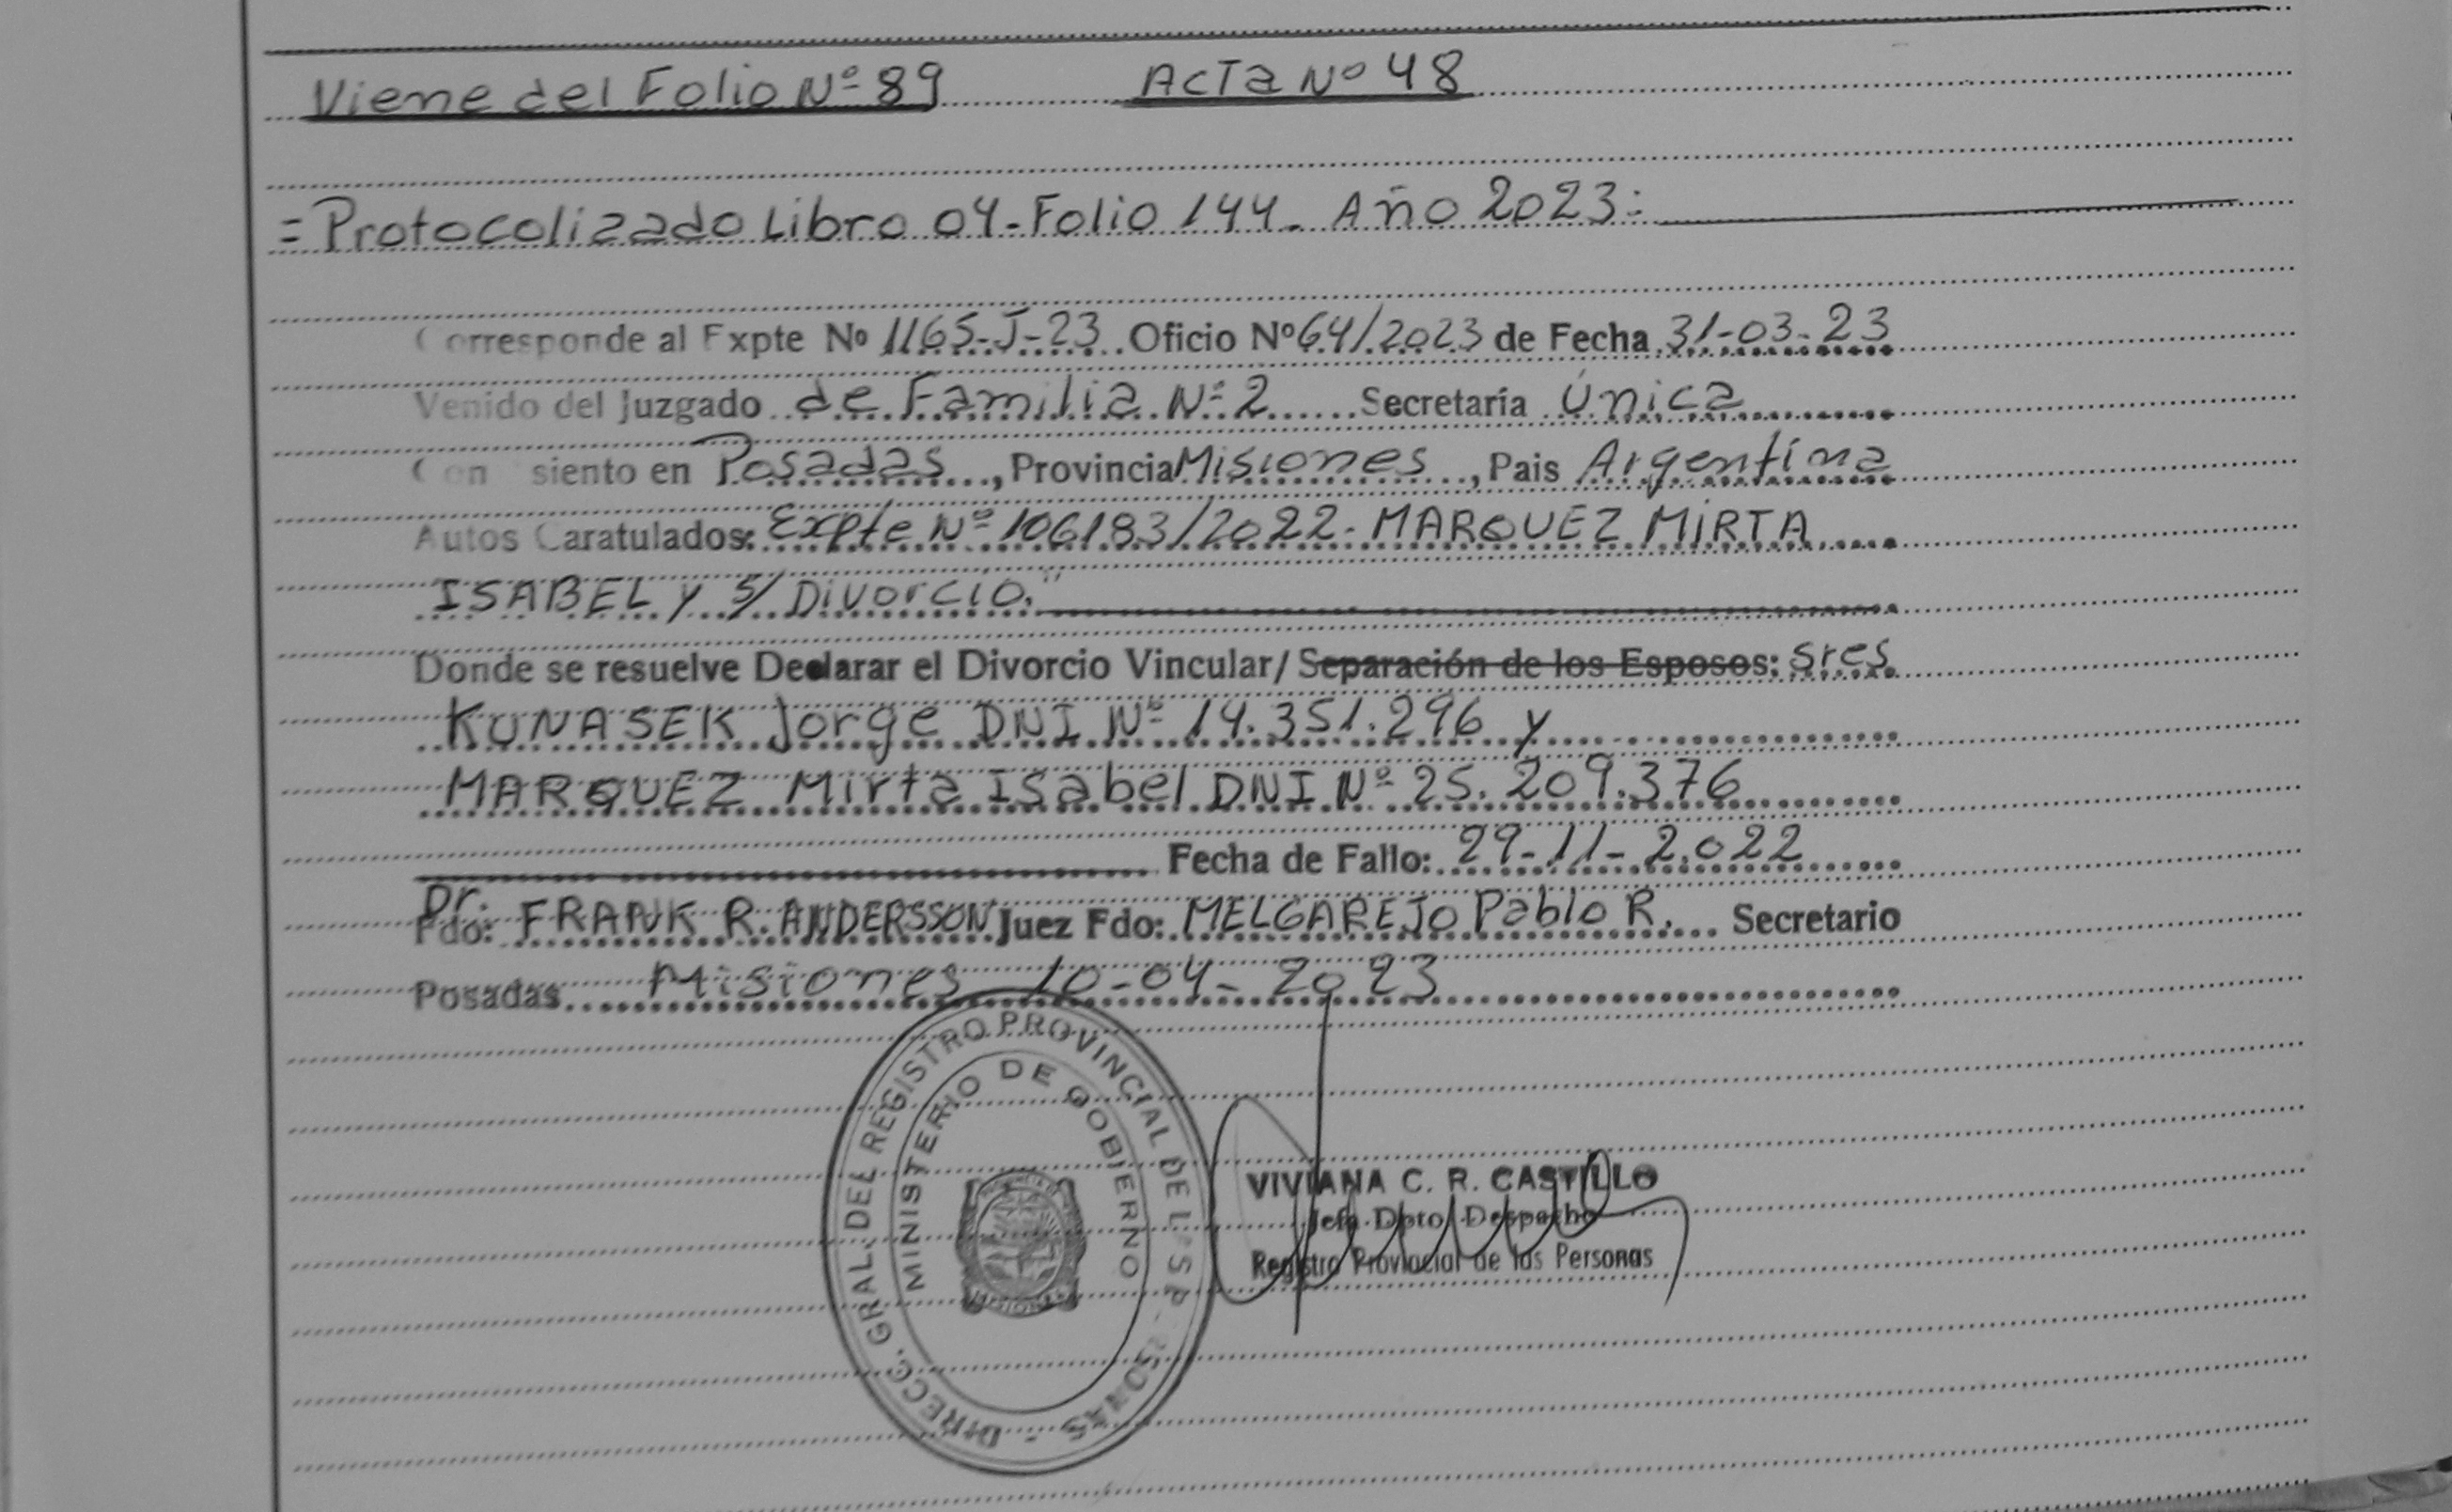 Viene del Folio Nº 89 Acta Nº 48
= Protocolizado Libro 04-Folio 144- Año 2023:
Corresponde al Expte Nº 1165-J-23 Oficio Nº 64/2023 de Fecha 31-03-23
Venido del Juzgado de Familia Nº 2 Secretaría Única
Con siento en Posadas, Provincia Misiones, Pais Argentina
Autos Caratulados: Expte Nº 106183/2022- MARQUEZ MIRTA
ISABEL y s/ Divorcio."
Donde se resuelve Declarar el Divorcio Vincular/ Separación de los Esposos: Sres
KUNASEK Jorge DNI Nº 14.351.296 y
MARQUEZ Mirta Isabel DNI Nº 25.209.376
Fecha de Fallo: 29-11-2.022
Dr.
Fdo: FRANK R. ANDERSSON Juez Fdo: MELGAREJO Pablo R. Secretario
Posadas Misiones 10-04-2023
DIRECC. GRAL. DEL REGISTRO PROVINCIAL DE
MINISTERIO DE GOBIERNO
MISIONES
VIVIANA C. R. CASTILLO
Jefa Dpto. Despacho
Registro Provincial de las Personas